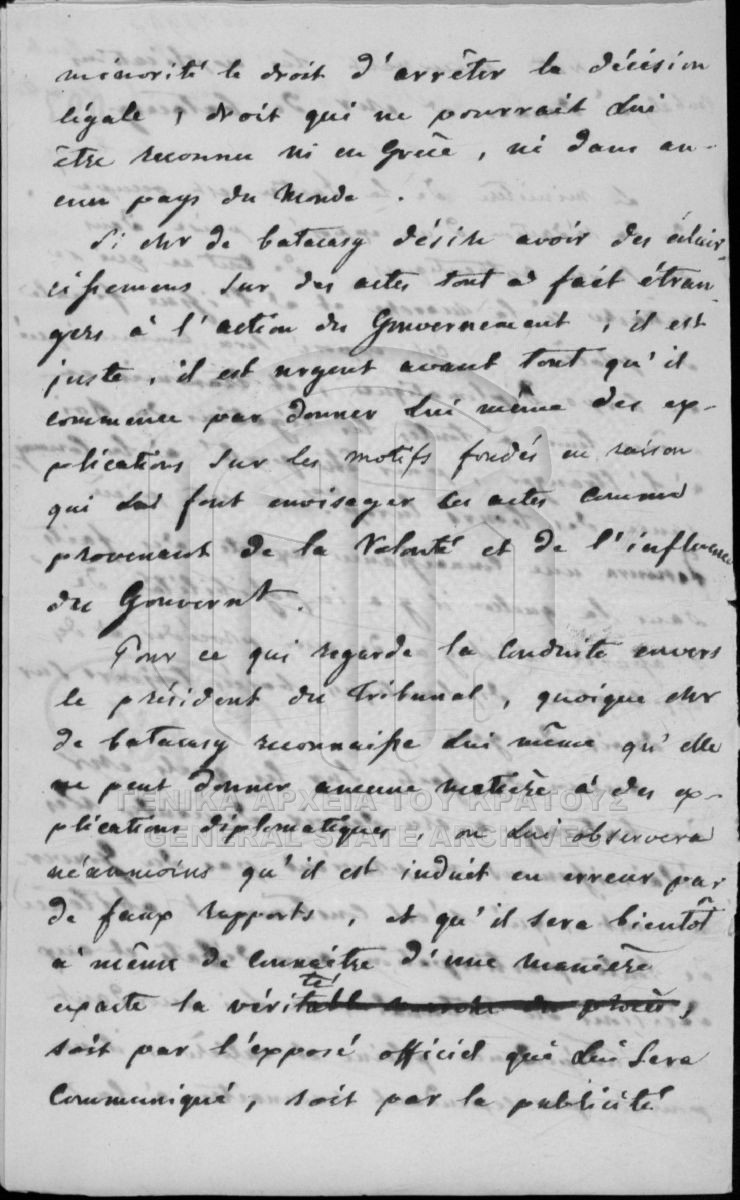 minorité le droit d'arrêter la décision
légale, droit qui ne pourrait lui
être reconnu ni en Grèce, ni dans au-
cun pays du Monde.
Si Mr de Catacasy désire avoir des éclair-
cissemens sur des actes tout à fait étran-
gers à l'action du Gouvernement, il est
juste, il est urgent avant tout qu'il
commence par donner lui même des ex-
plications sur les motifs fondés en raison
qui lui font envisager ces actes comme
provenant de la Volonté et de l'influence
du Gouvernt.
Pour ce qui regarde la Conduite envers
le président du Tribunal, quoique Mr
de Catacasy reconnaisse lui même qu'elle
ne peut donner aucune matière à des ex-
plications diplomatiques, on lui observera
néanmoins qu'il est induit en erreur par
de faux rapports, et qu'il sera bientôt
à même de Connaître d'une manière
exacte la vérité table marche du procès,
soit par l'exposé officiel qui lui sera
Communiqué, soit par la publicité
ΓΕΝΙΚΑ ΑΡΧΕΙΑ ΤΟΥ ΚΡΑΤΟΥΣ
GENERAL STATE ARCHIVES